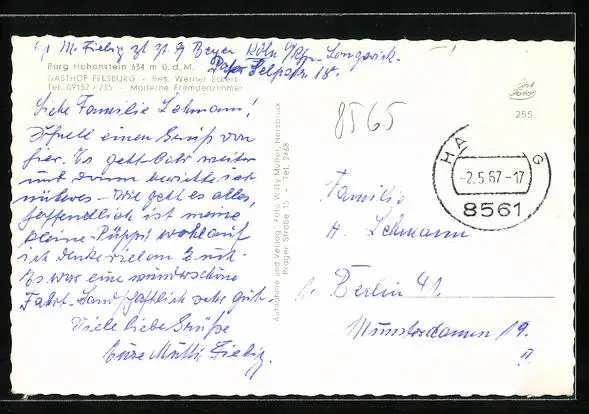 M. Fiebig zt. zt. Beyer Köln
Burg Hohenstein 634 m ü. d. M.
GASTHOF FELSBURG - Bes. Werner Eckert
Tel. 09152 / 235 - Moderne Fremdenzimmer
255
Liebe Familie Lehmann!
einen Gruß von
hier. Es geht weiter
und
näheres - Wie geht es alles,
hoffendlich ist meine
kleine Püppi wohlauf
ich denke viel an Euch.
Es war eine wunderschöne
Fahrt. Landschaftlich sehr gut.
Viele liebe Grüße
Eure Mutti Fiebig.
Aufnahme und Verlag: Foto Willy Müller, Hersbruck
Prager Straße 15 + Tel. 2468
8565
HA G
-2.5.67-17
8561
Familie
H. Lehmann
1. Berlin 41.
Munsterdamm 19.
II